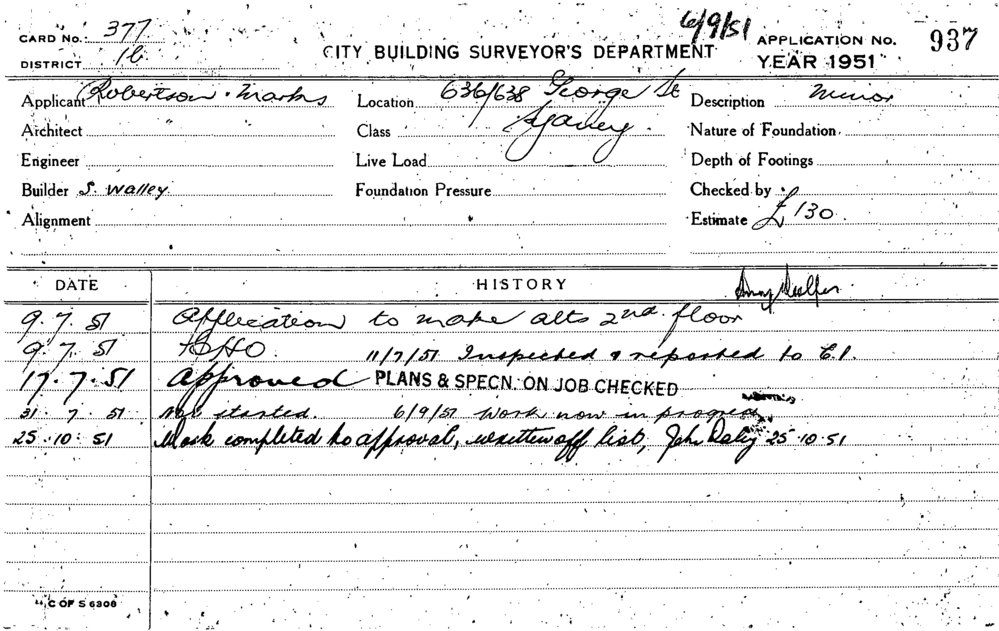 6/9/51
CARD No. 377
CITY BUILDING SURVEYOR'S DEPARTMENT
APPLICATION No. 937
DISTRICT 16
YEAR 1951
Applicant Robertson & Marks
Location 636/638 George St
Description Minor
Architect
Class Sydney.
Nature of Foundation
Engineer
Live Load
Depth of Footings
Builder S. Walley
Foundation Pressure
Checked by
Alignment
Estimate £130.
DATE HISTORY
9.7.51 Application to make alts 2nd floor
9.7.51 11/7/51 Inspected & reported to C.I.
17.7.51 Approved PLANS & SPECN. ON JOB CHECKED
31.7.51 Not started. 6/9/51 Work now in progress
25.10.51 Work completed to approval, written off list, John Daley 25.10.51
C OF S 6308